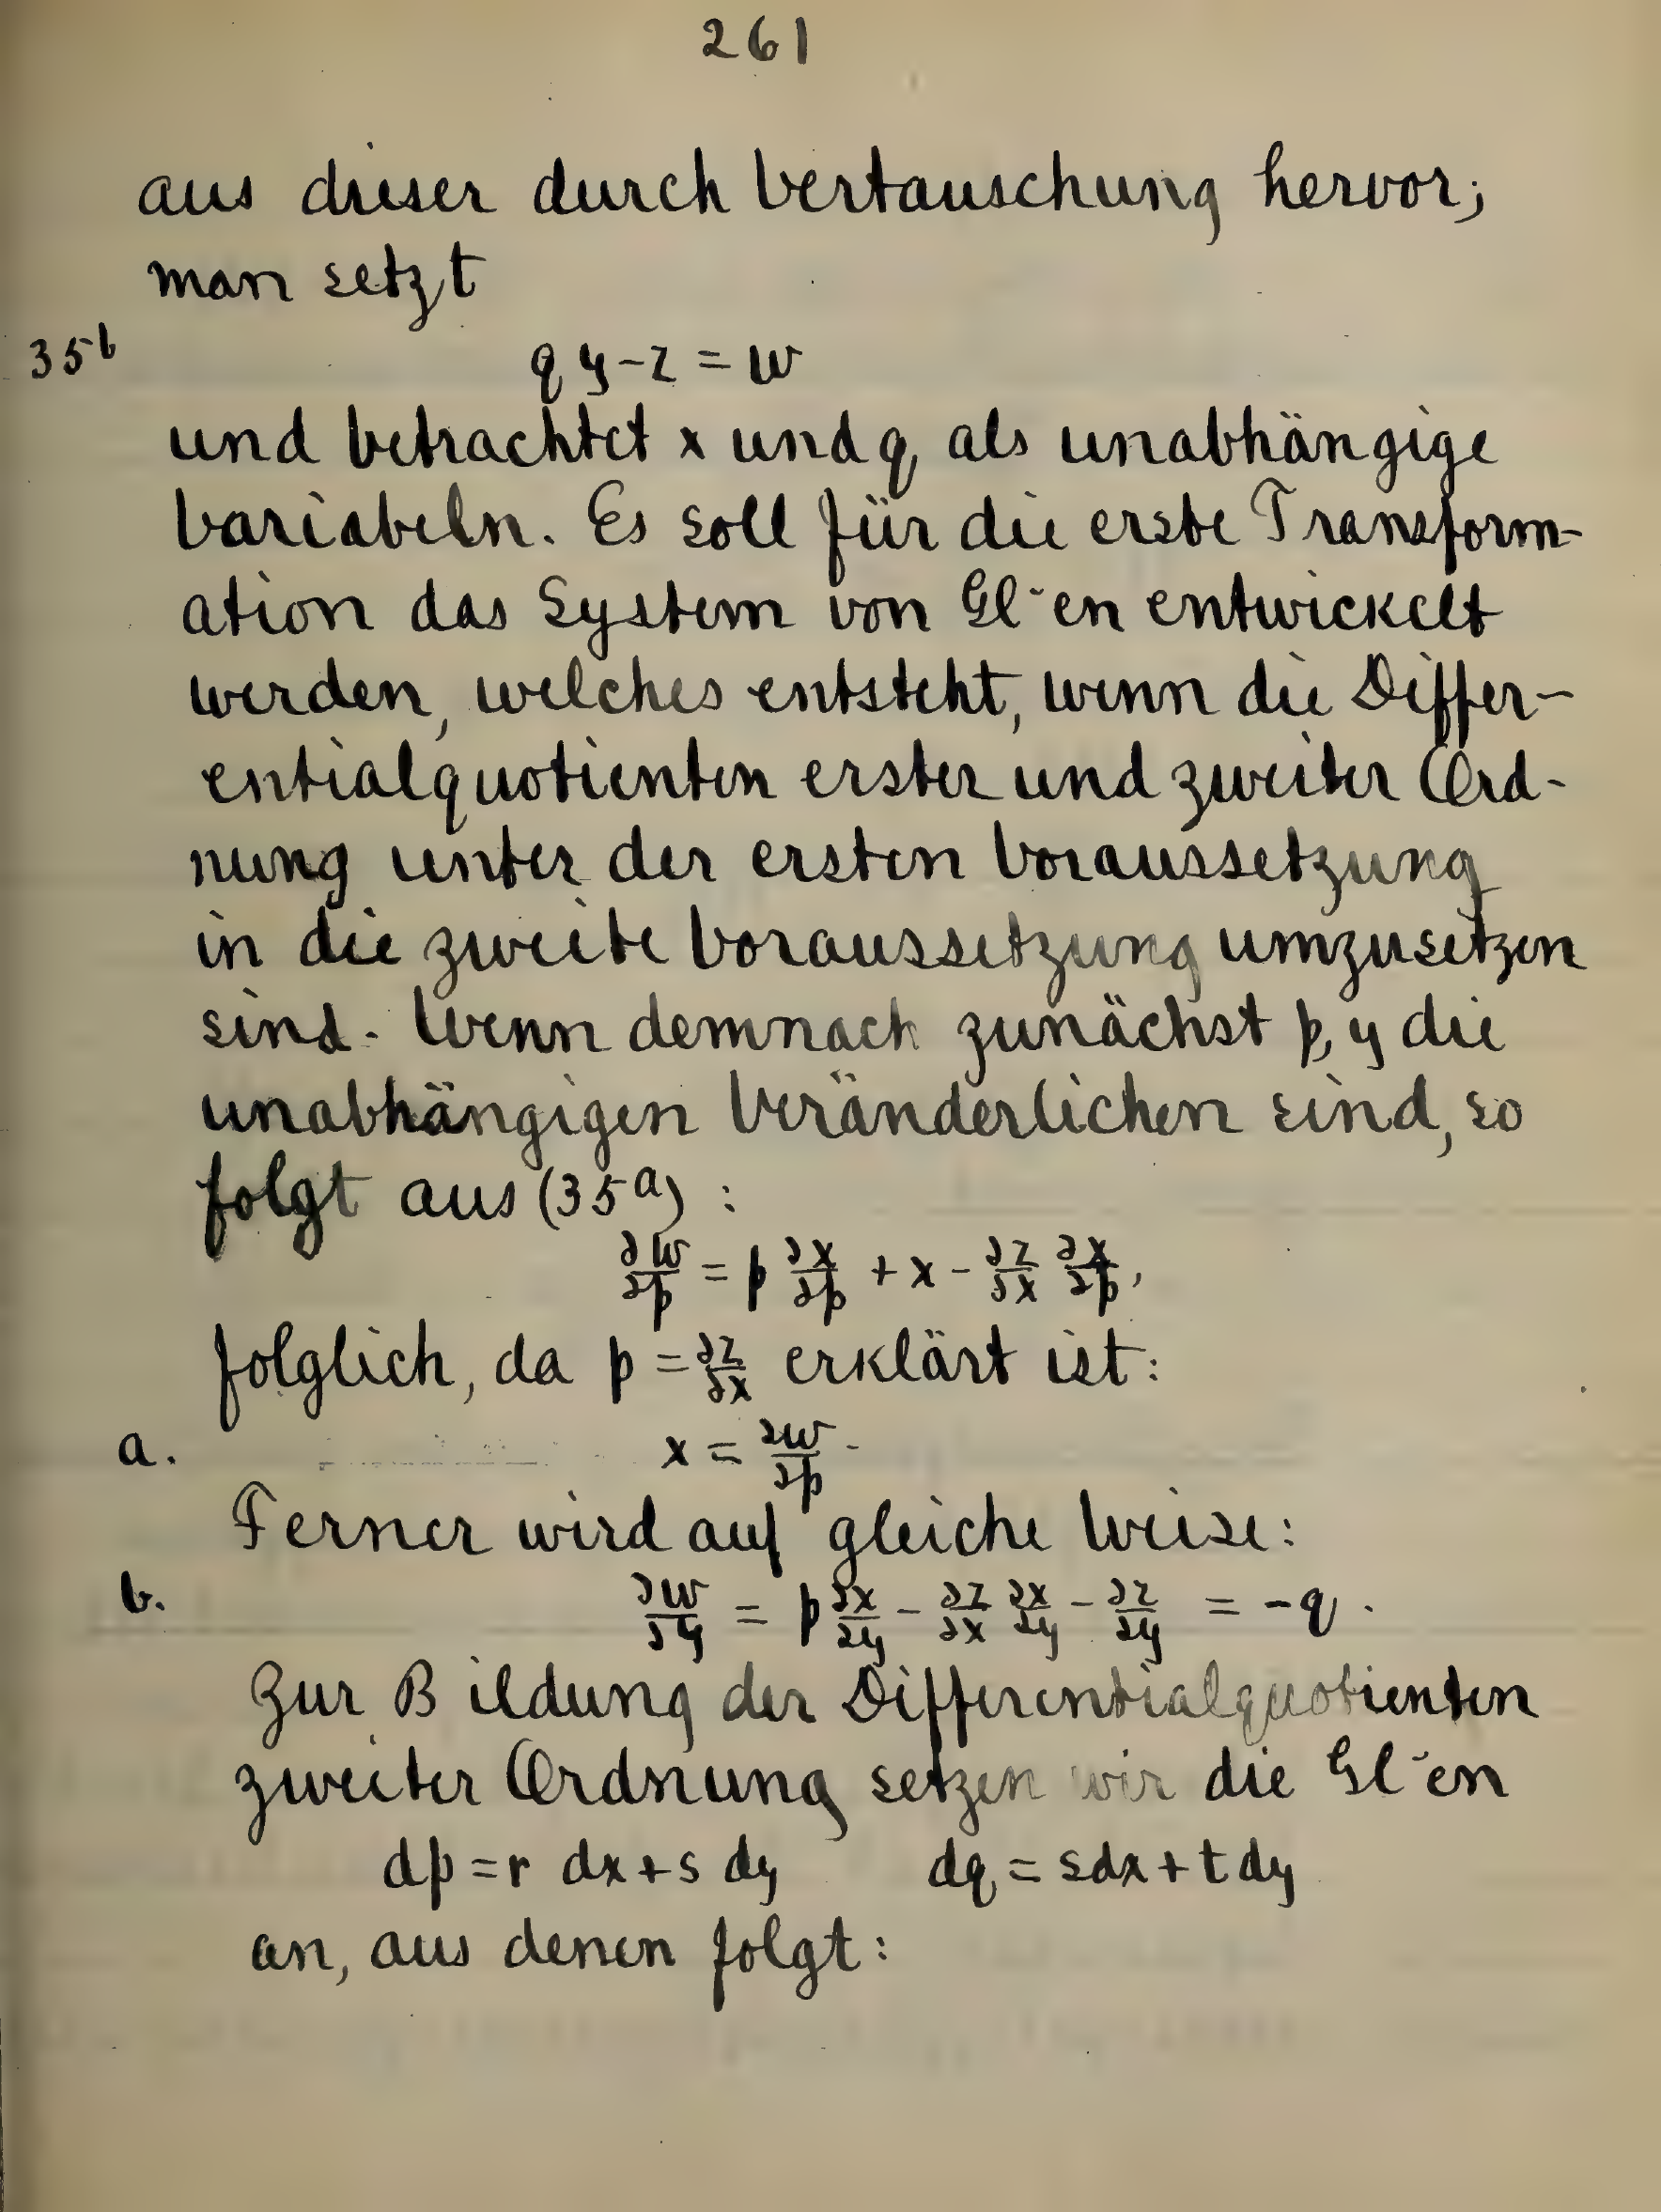 261
aus dieser durch Vertauschung hervor;
man setzt
35b qy - z = w
und betrachtet x und q als unabhängige
Variabeln. Es soll für die erste Transform-
ation das System von Gl-en entwickelt
werden, welches entsteht, wenn die Differ-
entialquotienten erster und zweiter Ord-
nung unter der ersten Voraussetzung
in die zweite Voraussetzung umzusetzen
sind. Wenn demnach zunächst p, y die
unabhängigen Veränderlichen sind, so
folgt aus (35a) :
∂w/∂p = p ∂x/∂p + x - ∂z/∂x ∂x/∂p,
folglich, da p = ∂z/∂x erklärt ist:
a. x = ∂w/∂p.
Ferner wird auf gleiche Weise:
b. ∂w/∂y = p ∂x/∂y - ∂z/∂x ∂x/∂y - ∂z/∂y = -q.
Zur Bildung der Differentialquotienten
zweiter Ordnung setzen wir die Gl-en
dp = r dx + s dy dq = s dx + t dy
an, aus denen folgt: